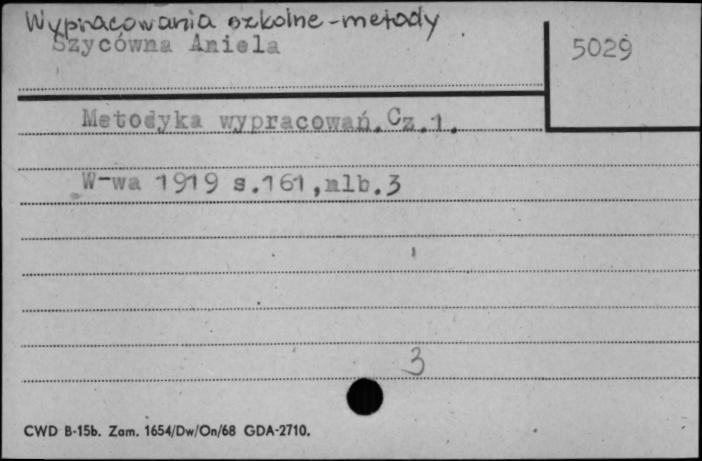 Wypracowania szkolne - metody
Szycówna Aniela
5029
Metodyka wypracowań. Cz.1.
W-wa 1919 s.161,nlb.3
3
CWD B-15b. Zam. 1654/Dw/On/68 GDA-2710.